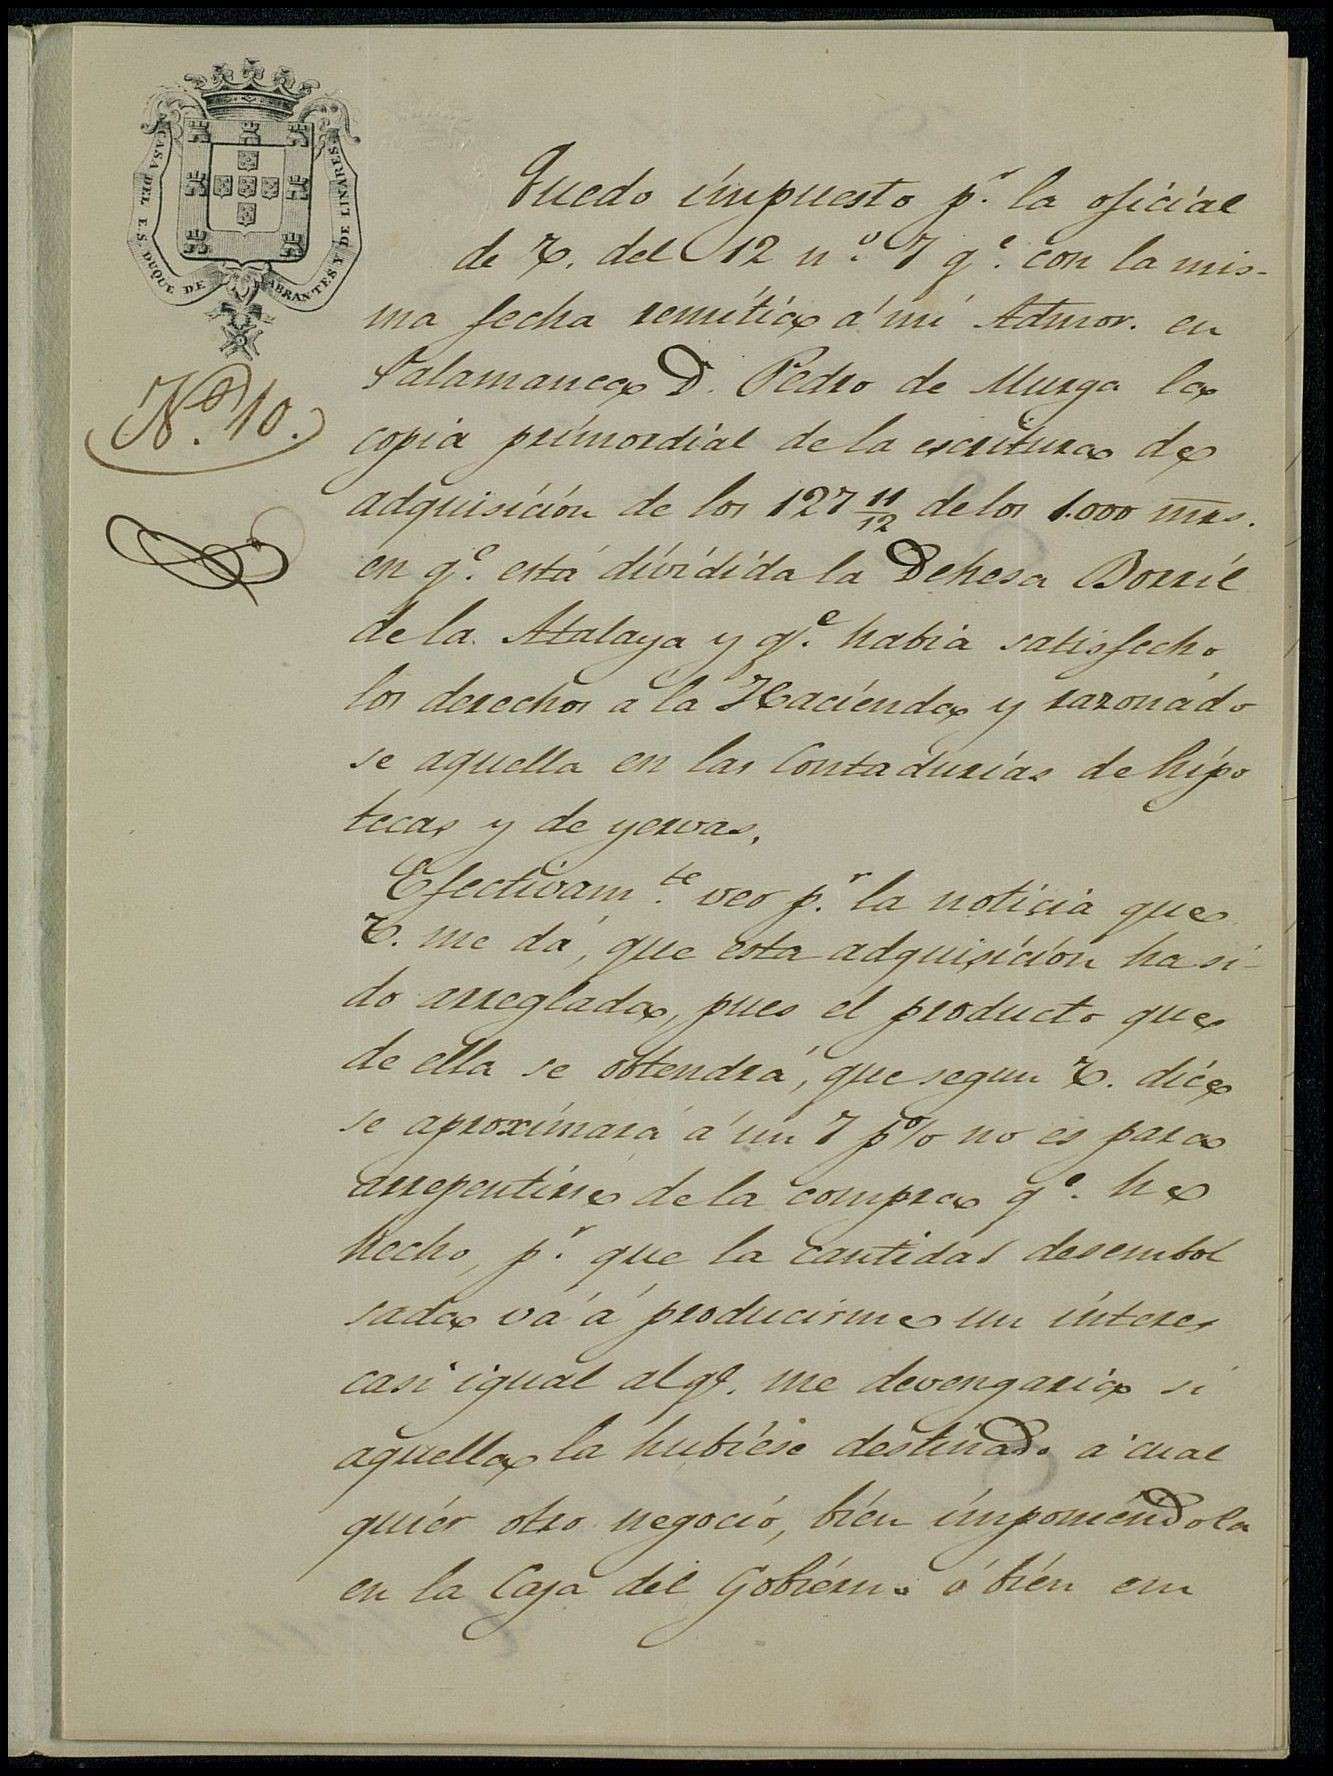 CASA DEL E.S. DUQUE DE ABRANTES Y DE LINARES
Nº. 10.
Quedo impuesto p.r la oficial
de V. del 12 n.º 7 q.e con la mis-
ma fecha remitia á mi Admor. en
Salamanca D. Pedro de Murga la
copia primordial de la escritura de
adquisición de los 127 11/12 de los 1.000 mrs.
en q.e está dividida la Dehesa Borril
de la Atalaya y q.e habia satisfecho
los derechos á la Hacienda y razonádo
se aquella en las Contadurías de hipo
tecas y de yervas.
Efectivam.te veo p.r la noticia que
V. me dá, que esta adquisición ha si-
do arreglada, pues el producto que
de ella se obtendrá, que segun V. dice
se aproximará á un 7 p% no es para
arrepentirme de la compra q.e he
hecho, p.r que la cantidad desembol
sada vá á producirme un interes
casi igual al q.e me devengaria si
aquella la hubiese destinado á cual
quier otro negocio, bien imponiéndola
en la Caja del Gobierno ó bién em